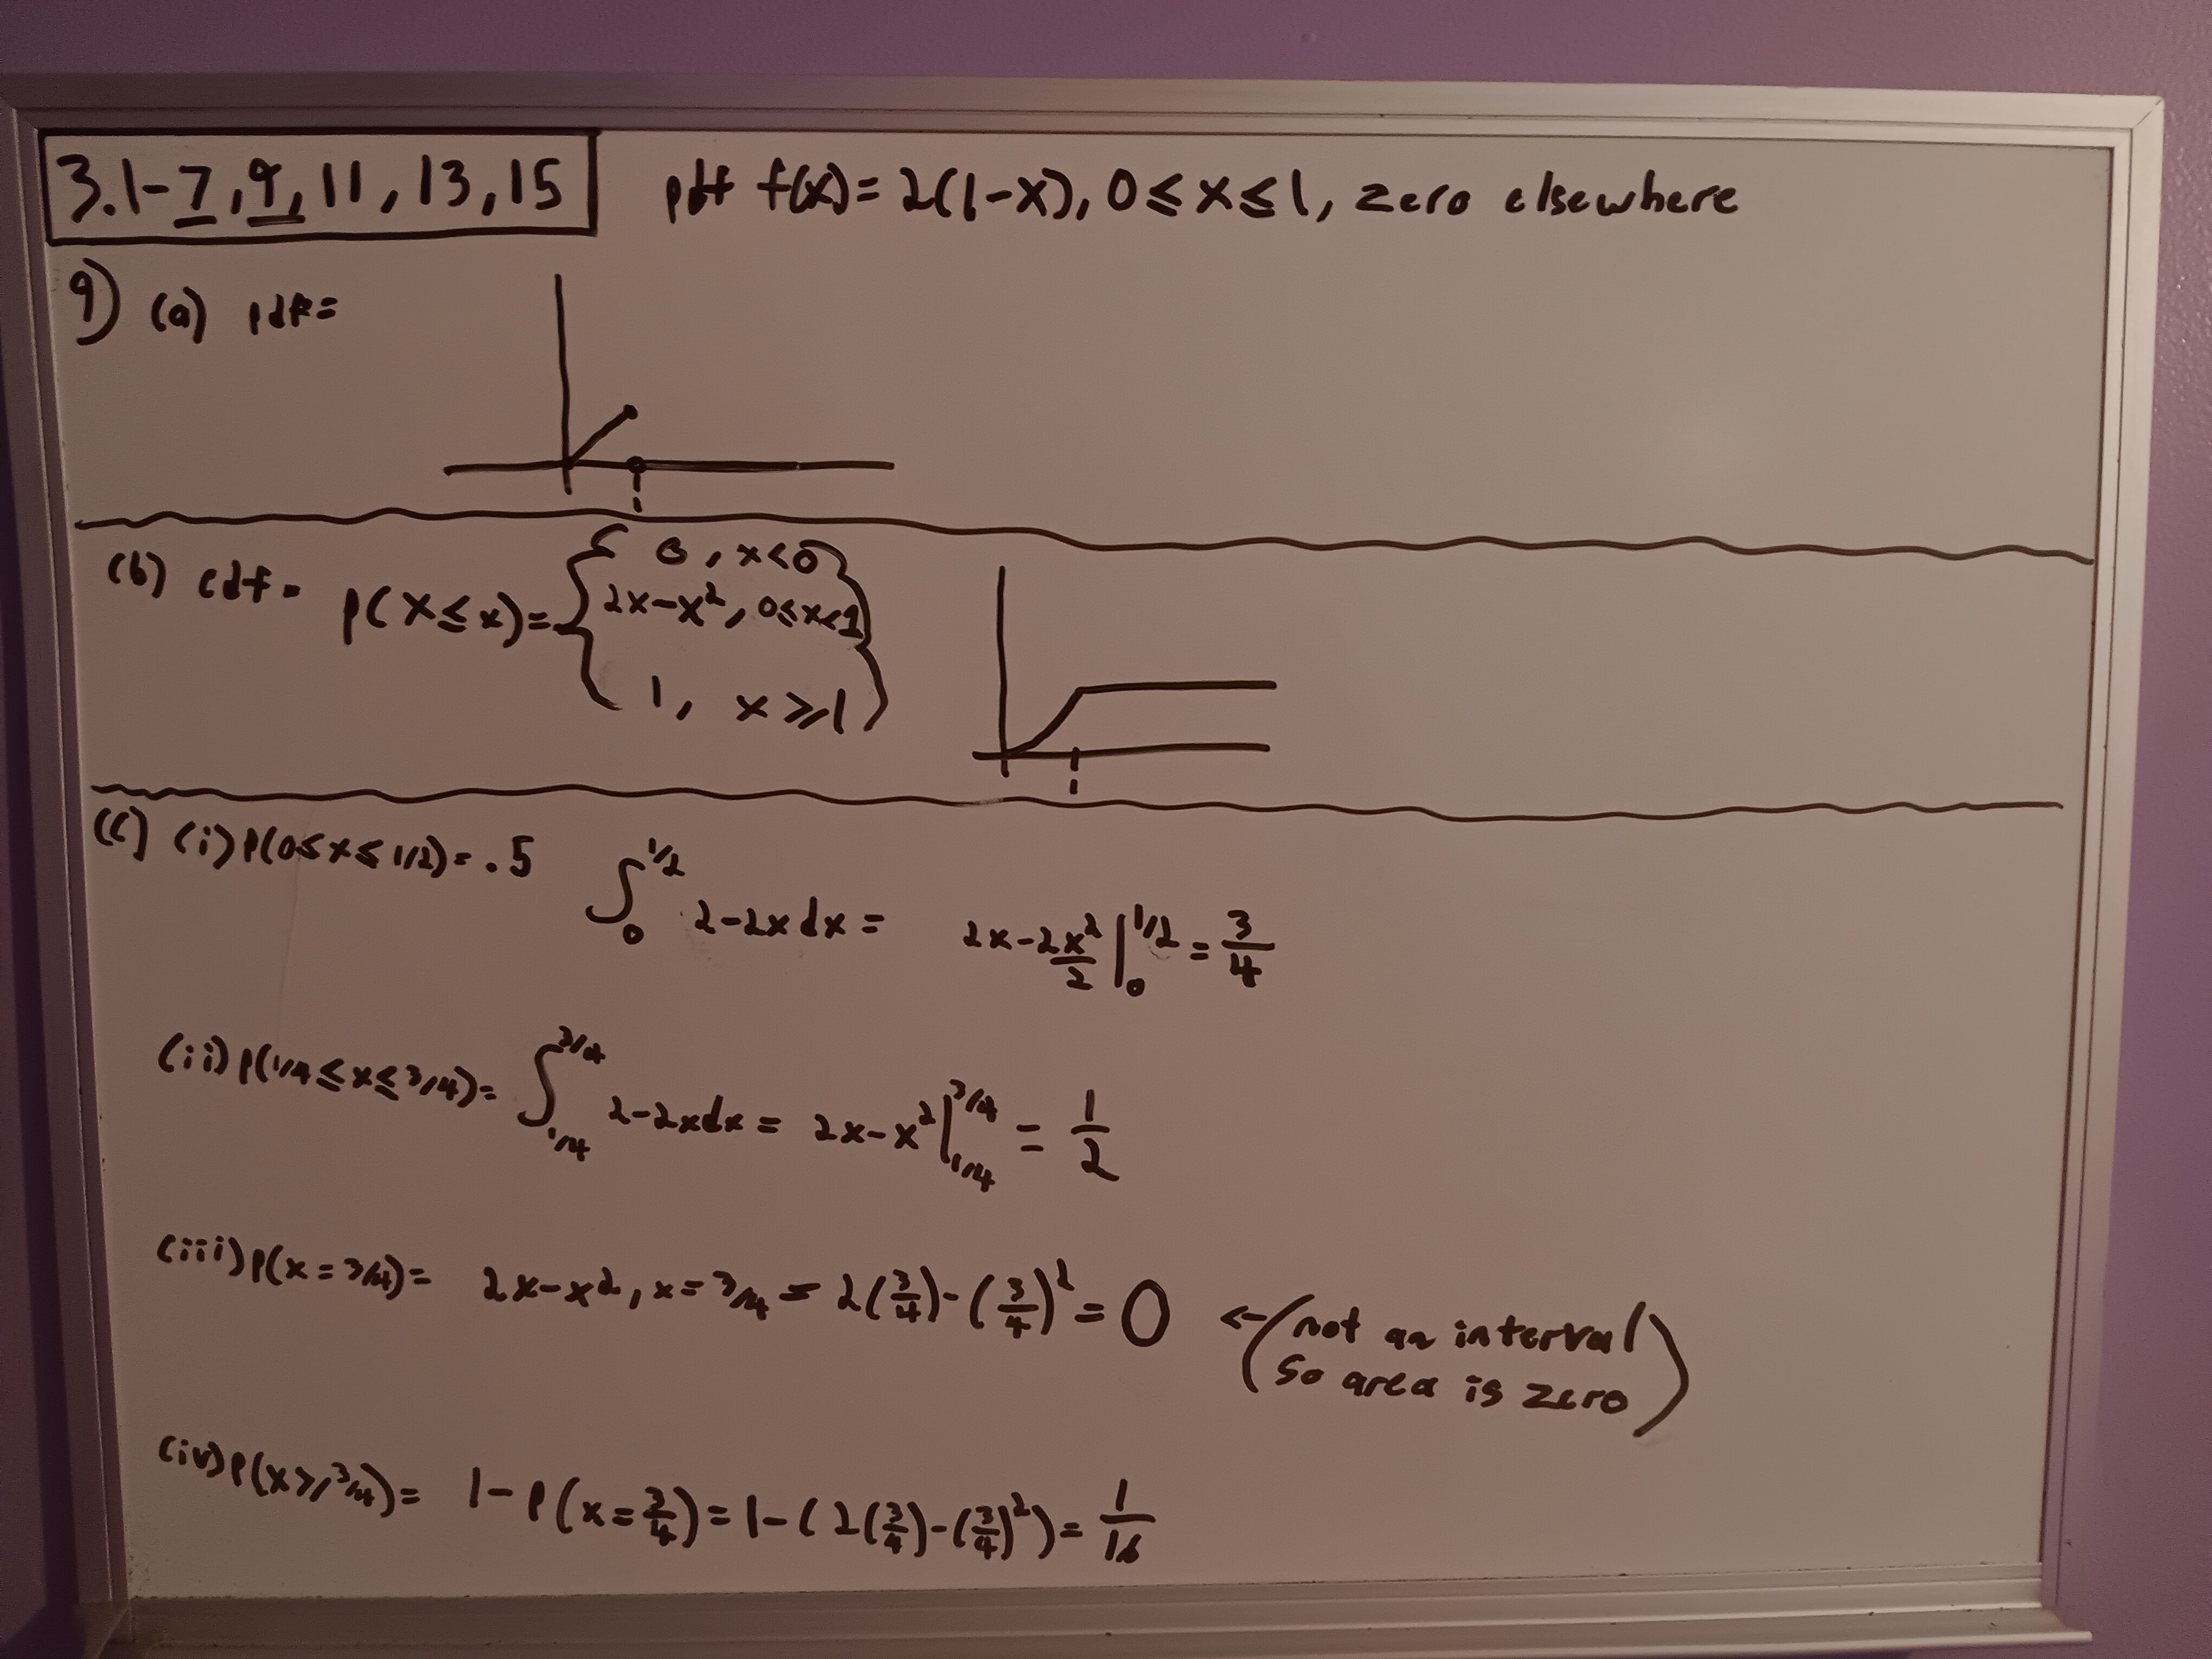 3.1-7,9,11,13,15 pdf f(x)=2(1-x), 0≤x≤1, zero elsewhere
9) (a) pdf=
(b) cdf= P(X≤x)={ 0, x<0
2x-x², 0≤x<1
1, x≥1 }
(c) (i) P(0≤x≤1/2)=.5 ∫₀^{1/2} 2-2x dx = 2x-2x²/2 |₀^{1/2} = 3/4
(ii) P(1/4≤x≤3/4)= ∫_{1/4}^{3/4} 2-2xdx = 2x-x² |_{1/4}^{3/4} = 1/2
(iii) P(x=3/4)= 2x-x², x=3/4 = 2(3/4)-(3/4)² = 0 ← (not an interval
so area is zero)
(iv) P(x≥3/4)= 1-P(x=3/4)=1-(2(3/4)-(3/4)²)= 1/16